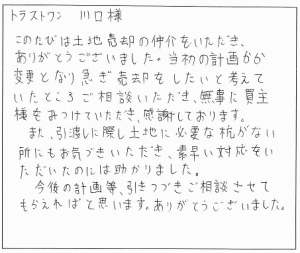 トラストワン 川口様
このたびは土地売却の仲介をいただき、
ありがとうございました。当初の計画から
変更となり急ぎ売却をしたいと考えて
いたところご相談いただき、無事に買主
様をみつけていただき、感謝しております。
また、引渡しに際し土地に必要な杭がない
所にもお気づきいただき、素早い対応をい
ただいたのには助かりました。
今後の計画等、引きつづきご相談させて
もらえればと思います。ありがとうございました。